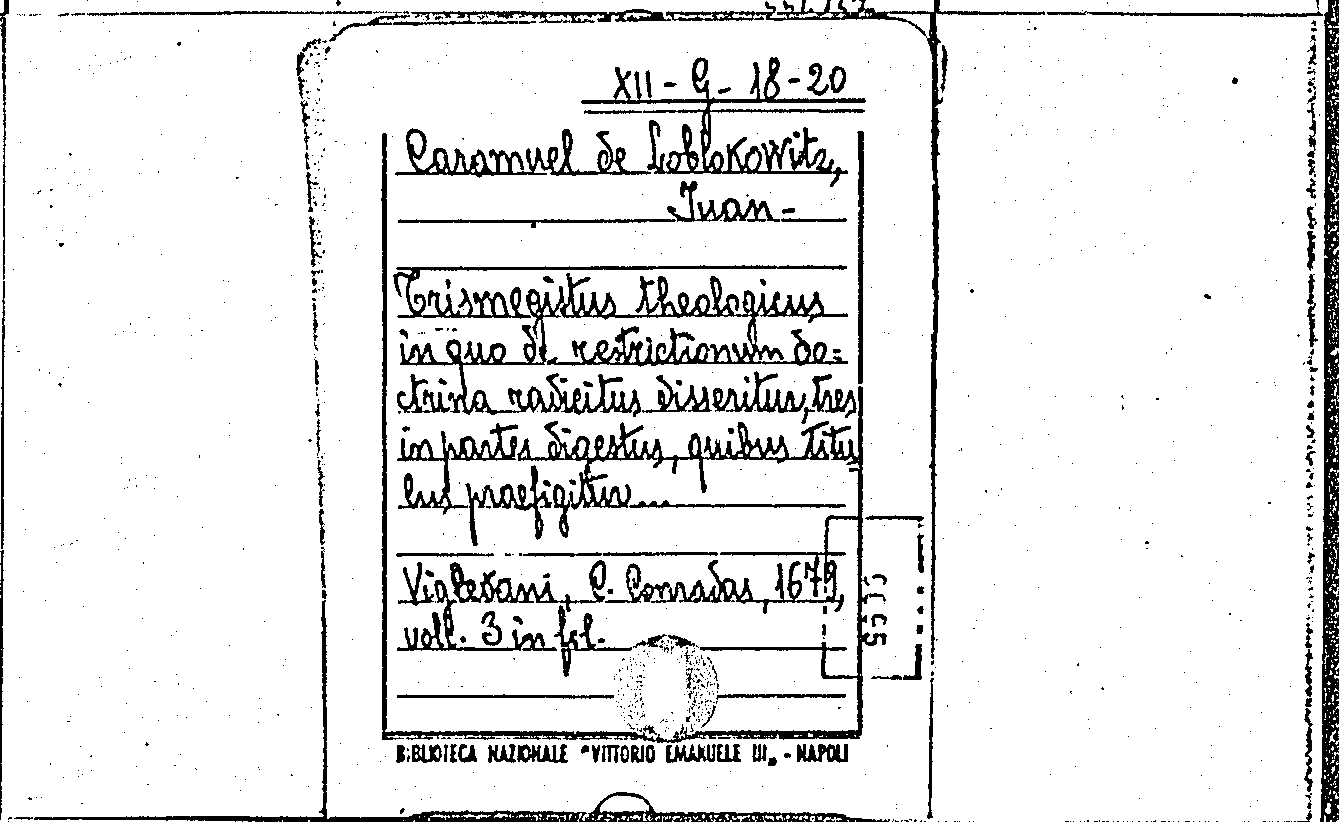 XII - G - 18-20
Caramuel de Loblokowitz,
Juan -
Trismegistus theologicus
in quo de restrictionum do=
ctrina radicitus disseritur, tres
in partes digestus, quibus titu
lus praefigitur...
Viglevani, C. Conradas, 1679,
voll. 3 in fol.
BIBLIOTECA NAZIONALE "VITTORIO EMANUELE III„ - NAPOLI